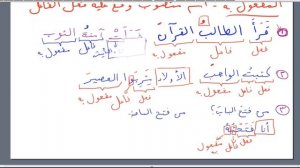 المفعول به = اسم منصوب وقع عليه فعل الفاعل
① قرأ الطالب القرآن
فعل فاعل مفعول به
② كتبت الواجب
فعل فاعل مفعول به
الأولاد العصير
فعل فاعل مفعول به
③ من فتح الباب؟
أنا فتحته
فعل فاعل مفعول به